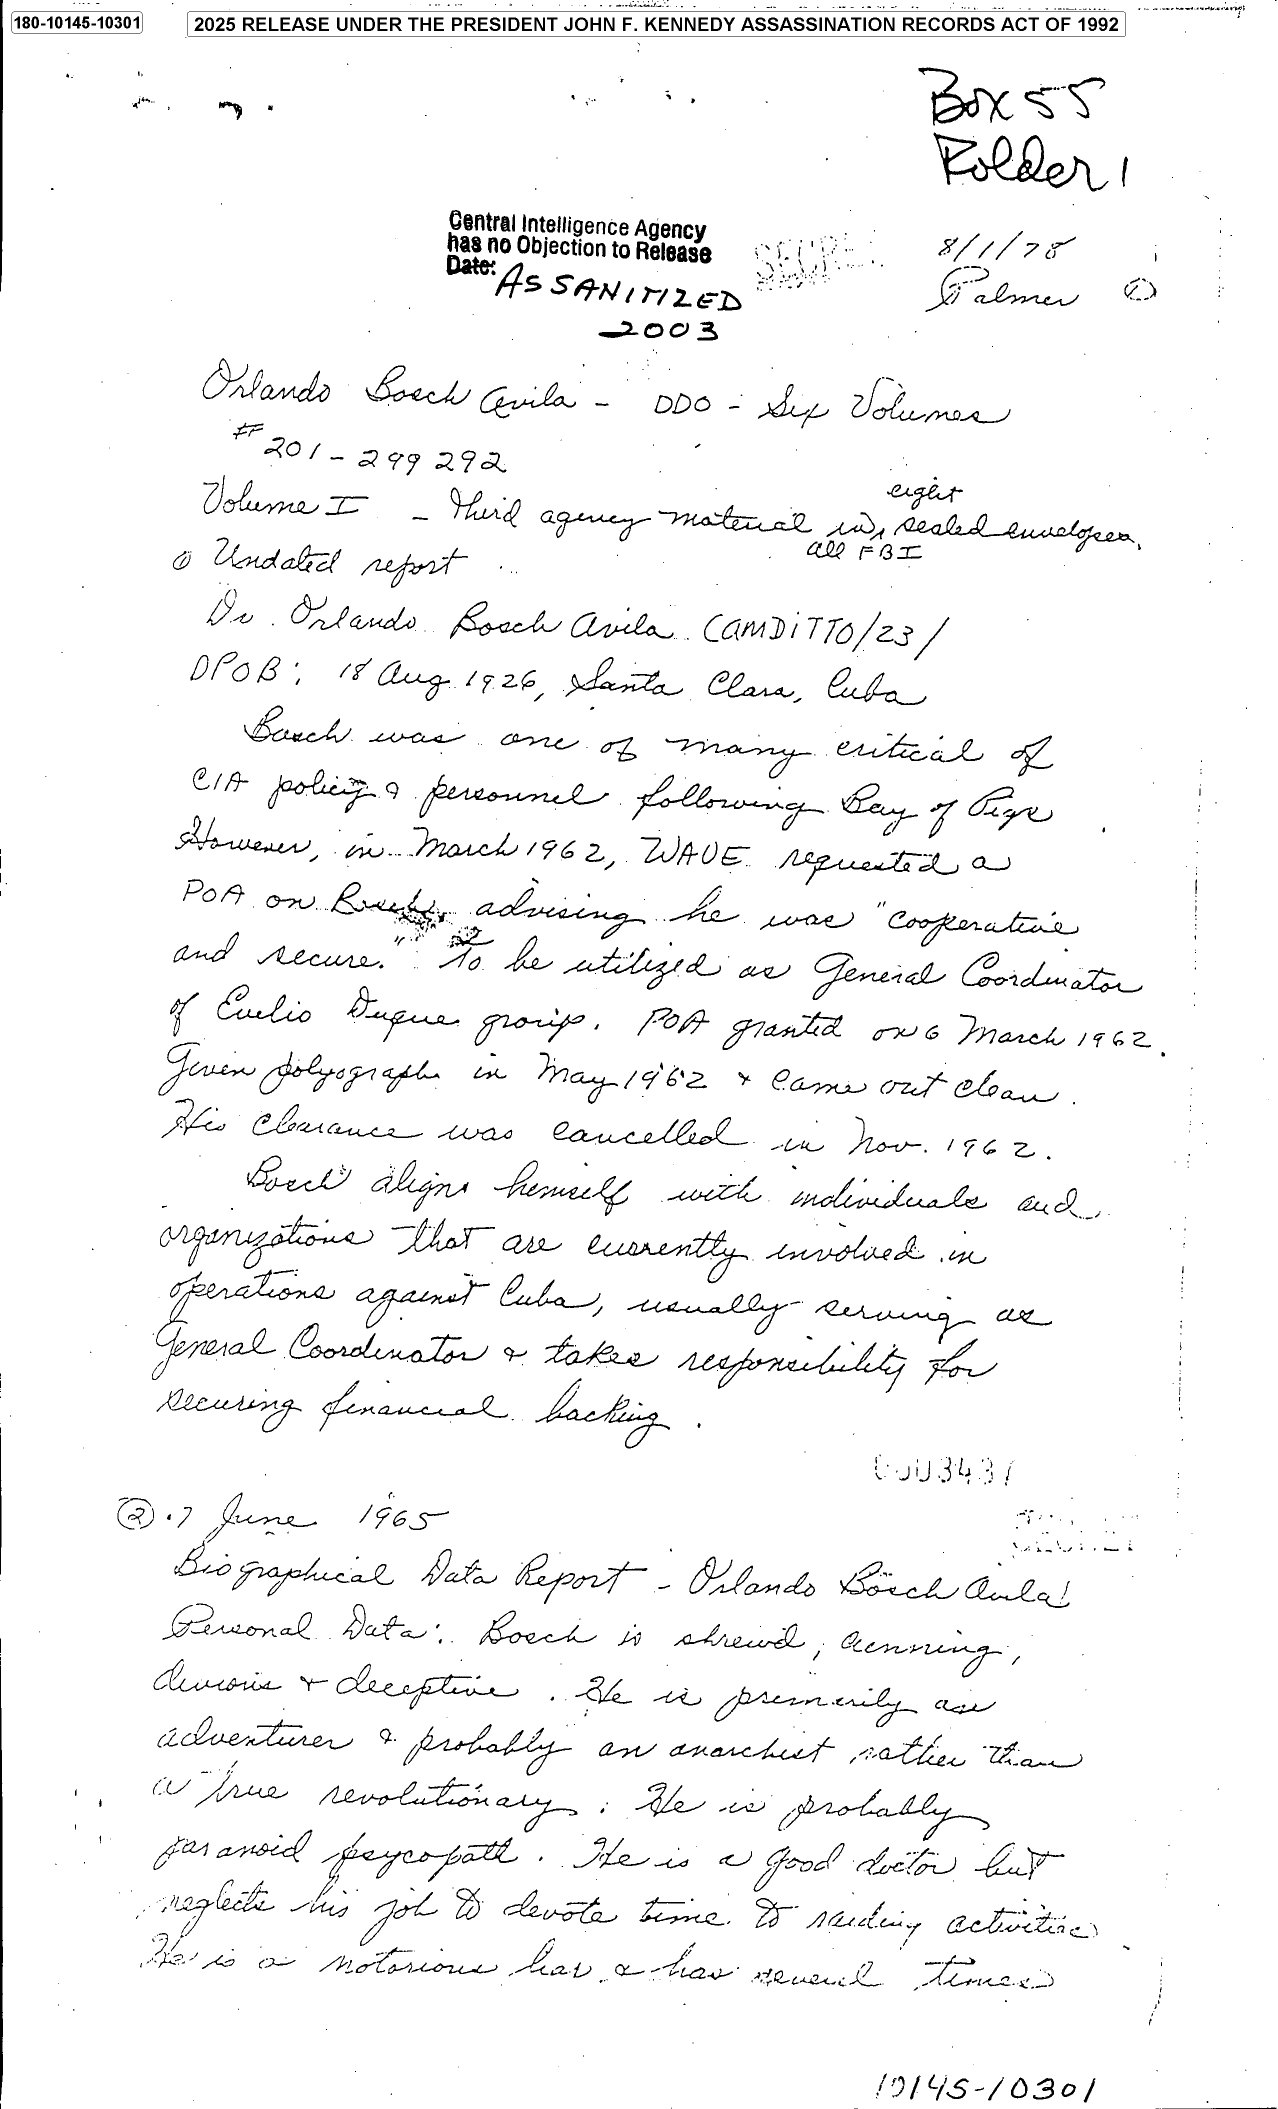 180-10145-10301
2025 RELEASE UNDER THE PRESIDENT JOHN F. KENNEDY ASSASSINATION RECORDS ACT OF 1992
Box 55
Folder 1
Central Intelligence Agency
has no Objection to Release
Date: AS SANITIZED
2003
SECRET
8/1/78
Palmer ①
Orlando Bosch Avila - DDO - Six Volumes
# 201-299 292
eight
Volume I - Third agency material in, sealed envelopes.
all FBI
① Undated report
Dr. Orlando Bosch Avila (AMDITTO/23/
DPOB: 18 Aug 1926, Santa Clara, Cuba
Bosch was one of many critical of
CIA policy & personnel following Bay of Pigs
However, in March 1962, WAVE requested a
POA on Bosch, advising he was "cooperative
and secure." To be utilized as General Coordinator
of Evelio Duque group. POA granted on 6 March 1962.
Given polygraph in May 1962 & came out clean.
His clearance was cancelled in Nov. 1962.
Bosch aligns himself with individuals and
organizations that are currently involved in
operations against Cuba, usually serving as
General Coordinator & takes responsibility for
securing financial backing.
0003437
② . 7 June 1965
SECRET
Biographical Data Report - Orlando Bosch Avila
Personal Data: Bosch is shrewd, cunning,
devious & deceptive. He is primarily an
adventurer & probably an anarchist rather than
a true revolutionary. He is probably
paranoid psycopath. He is a good doctor but
neglects his job to devote time to raiding activities
He is a notorious liar & has several times
10145-10301